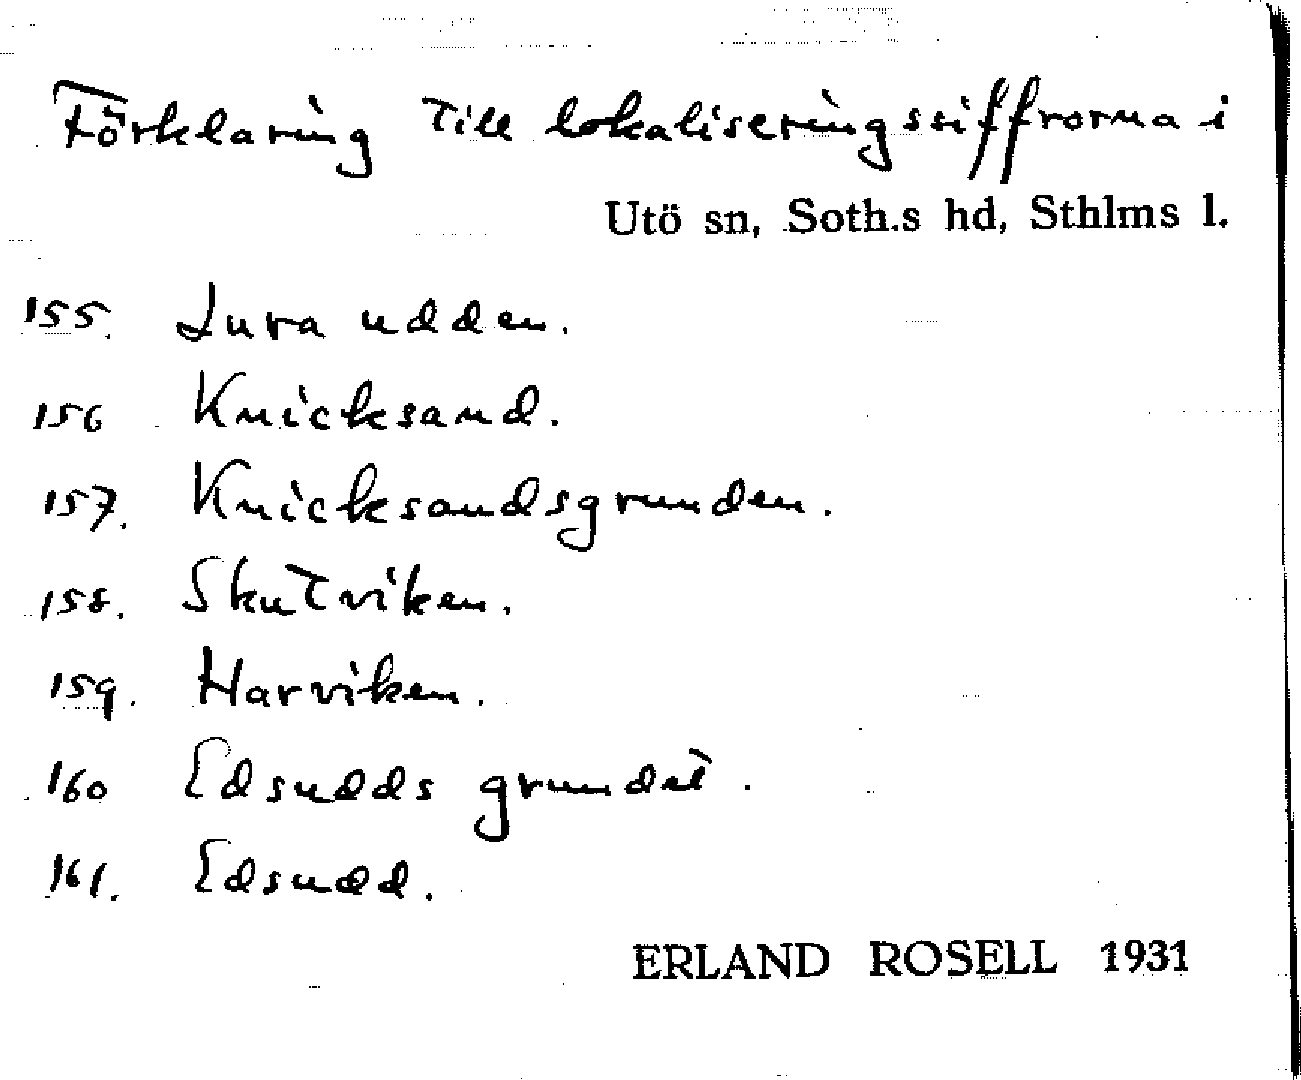 Förklaring till lokaliseringssiffrorna i
Utö sn, Soth.s hd, Sthlms l.
155. Lura udden.
156 Knicksand.
157. Knicksandsgrunden.
158. Skutviken.
159. Harviken.
160 Edsudds grundet.
161. Edsudd.
ERLAND ROSELL 1931